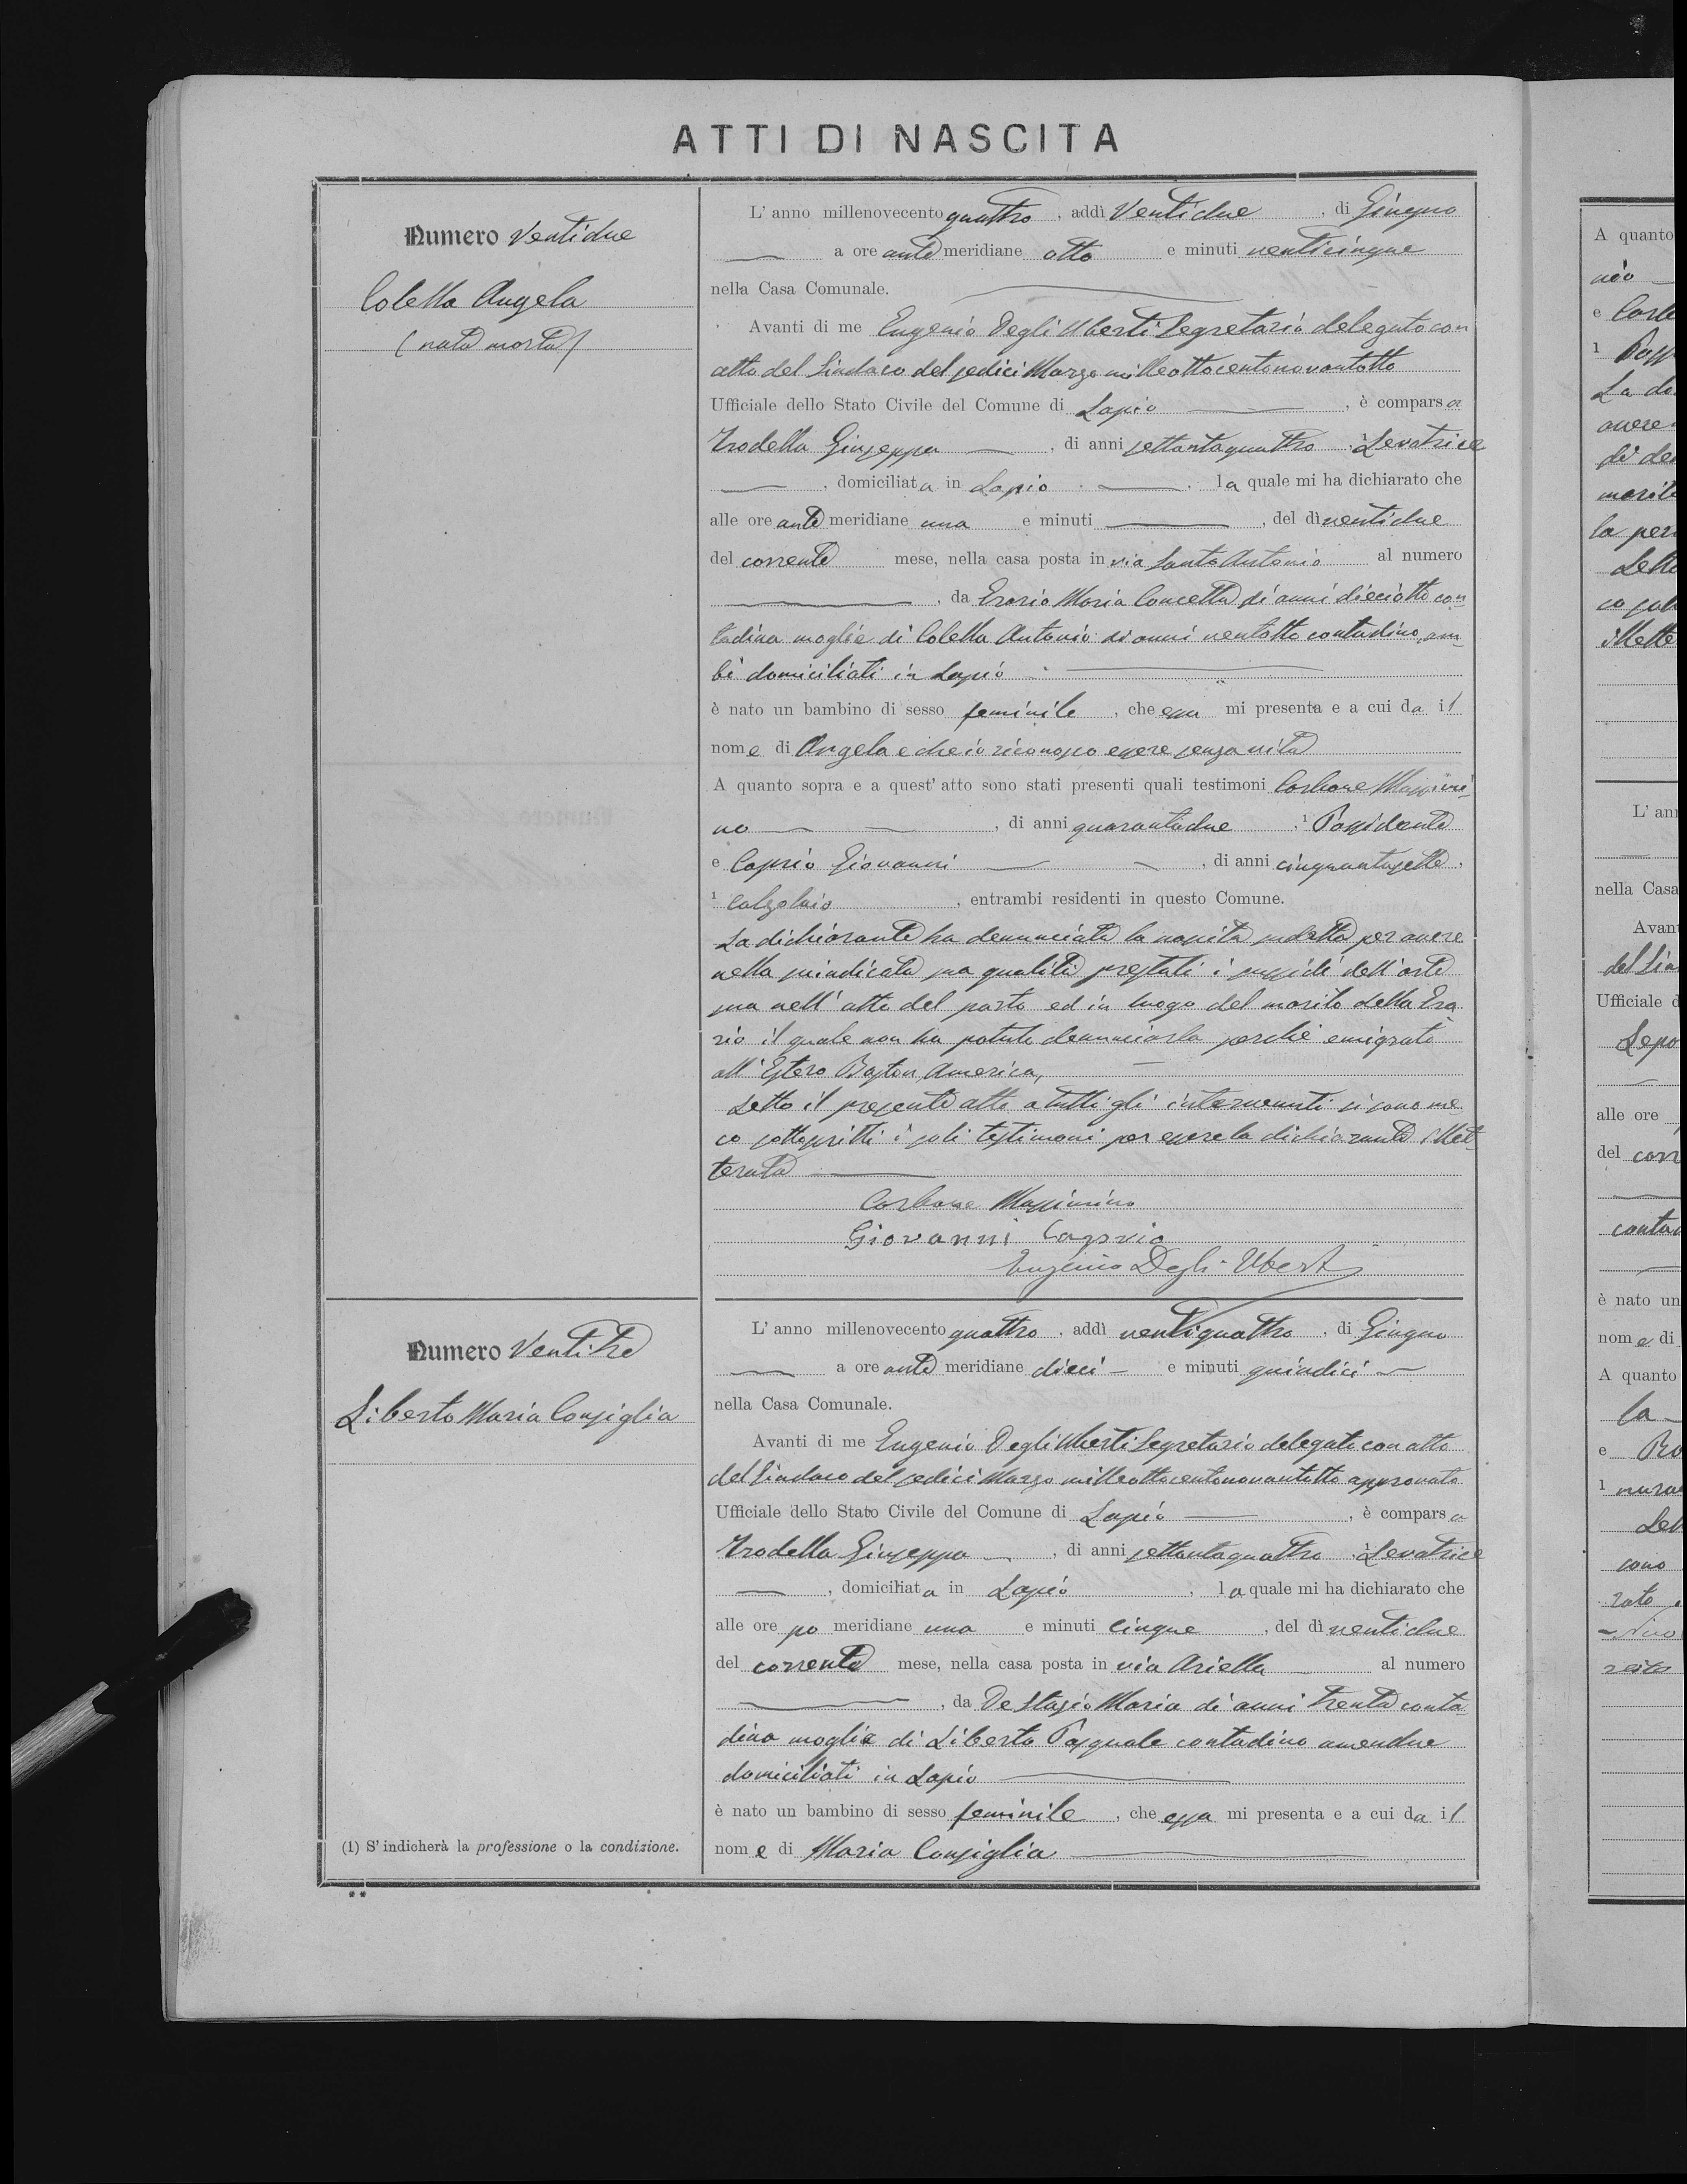 ATTI DI NASCITA
Numero Ventidue
Colella Angela
(nata morta)
L' anno millenovecento quattro, addì Ventidue, di Giugno
a ore antemeridiane otto e minuti venticinque
nella Casa Comunale.
Avanti di me Eugenio Degli Uberti Segretario delegato con
atto del Sindaco del sedici Marzo milleottocentonovantotto
Ufficiale dello Stato Civile del Comune di Lapio, è comparsa
Trodella Giuseppa, di anni settantaquattro, Levatrice
, domiciliata in Lapio, la quale mi ha dichiarato che
alle ore antemeridiane una e minuti , del dì ventidue
del corrente mese, nella casa posta in via Santo Antonio al numero
, da Erario Maria Concetta di anni dieciotto con
tadina moglie di Colella Antonio di anni ventotto contadino, am
bi domiciliati in Lapio
è nato un bambino di sesso feminile, che essa mi presenta e a cui da il
nome di Angela e che io riconosco essere senza vita
A quanto sopra e a quest' atto sono stati presenti quali testimoni Carbone Massimi
no, di anni quarantadue, 1 Possidente
e Caprio Giovanni, di anni cinquantasette,
1 Calzolaio, entrambi residenti in questo Comune.
La dichiarante ha denunciata la nascita sudetta per avere
nella suindicata sua qualità prestati i sussidi dell'arte
sua nell'atto del parto ed in luogo del marito della Era
rio il quale non ha potuto denunciarla perché emigrato
all'Estero Boston America,
Letto il presente atto a tutti gli intervenuti si sono me
co sottoscritti i soli testimoni per essere la dichiarante illet
terata
Carbone Massimino
Giovanni Caprio
Eugenio Degli Uberti
Numero Ventitre
Liberto Maria Consiglia
L' anno millenovecento quattro, addì ventiquattro, di Giugno
a ore antemeridiane dieci e minuti quindici
nella Casa Comunale.
Avanti di me Eugenio Degli Uberti Segretario delegato con atto
del Sindaco del sedici Marzo milleottocentonovantotto approvato
Ufficiale dello Stato Civile del Comune di Lapio, è comparsa
Trodella Giuseppa, di anni settantaquattro, Levatrice
, domiciliata in Lapio, la quale mi ha dichiarato che
alle ore pomeridiane una e minuti cinque, del dì ventidue
del corrente mese, nella casa posta in via Ariella al numero
, da De Stasio Maria di anni trenta conta
dina moglie di Liberto Pasquale contadino amendue
domiciliati in Lapio
è nato un bambino di sesso feminile, che essa mi presenta e a cui da il
nome di Maria Consiglia
(1) S' indicherà la professione o la condizione.
**
A quanto
no
e Carb
1 Poss
La di
avere
di de
marit
la per
Letto
co sott
illette
L' an
nella Casa
Avan
del Sin
Ufficiale d
alle ore
del corr
contad
è nato un
nome di
A quanto
e
1
Let
cono